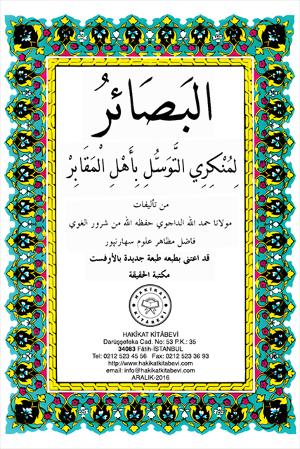 البَصَائِرُ
لِمُنْكِرِي التَّوَسُّلِ بِأَهْلِ الْمَقَابِرِ
من تأليفات
مولانا حمد الله الداجوي حفظه الله من شرور الغوي
فاضل مظاهر علوم سهارنپور
قد اعتنى بطبعه طبعة جديدة بالأوفست
مكتبة الحقيقة
HAKİKAT
KİTABEVİ
HAKİKAT KİTÂBEVİ
Darüşşefeka Cad. No: 53 P.K.: 35
34083 Fâtih-İSTANBUL
Tel: 0212 523 45 56 Fax: 0212 523 36 93
http://www.hakikatkitabevi.com
email: info@hakikatkitabevi.com
ARALIK-2016